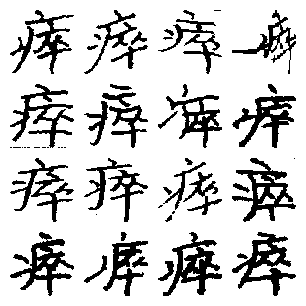 瘁瘁瘁瘁
瘁瘁瘁瘁
瘁瘁瘁瘁
瘁瘁瘁瘁